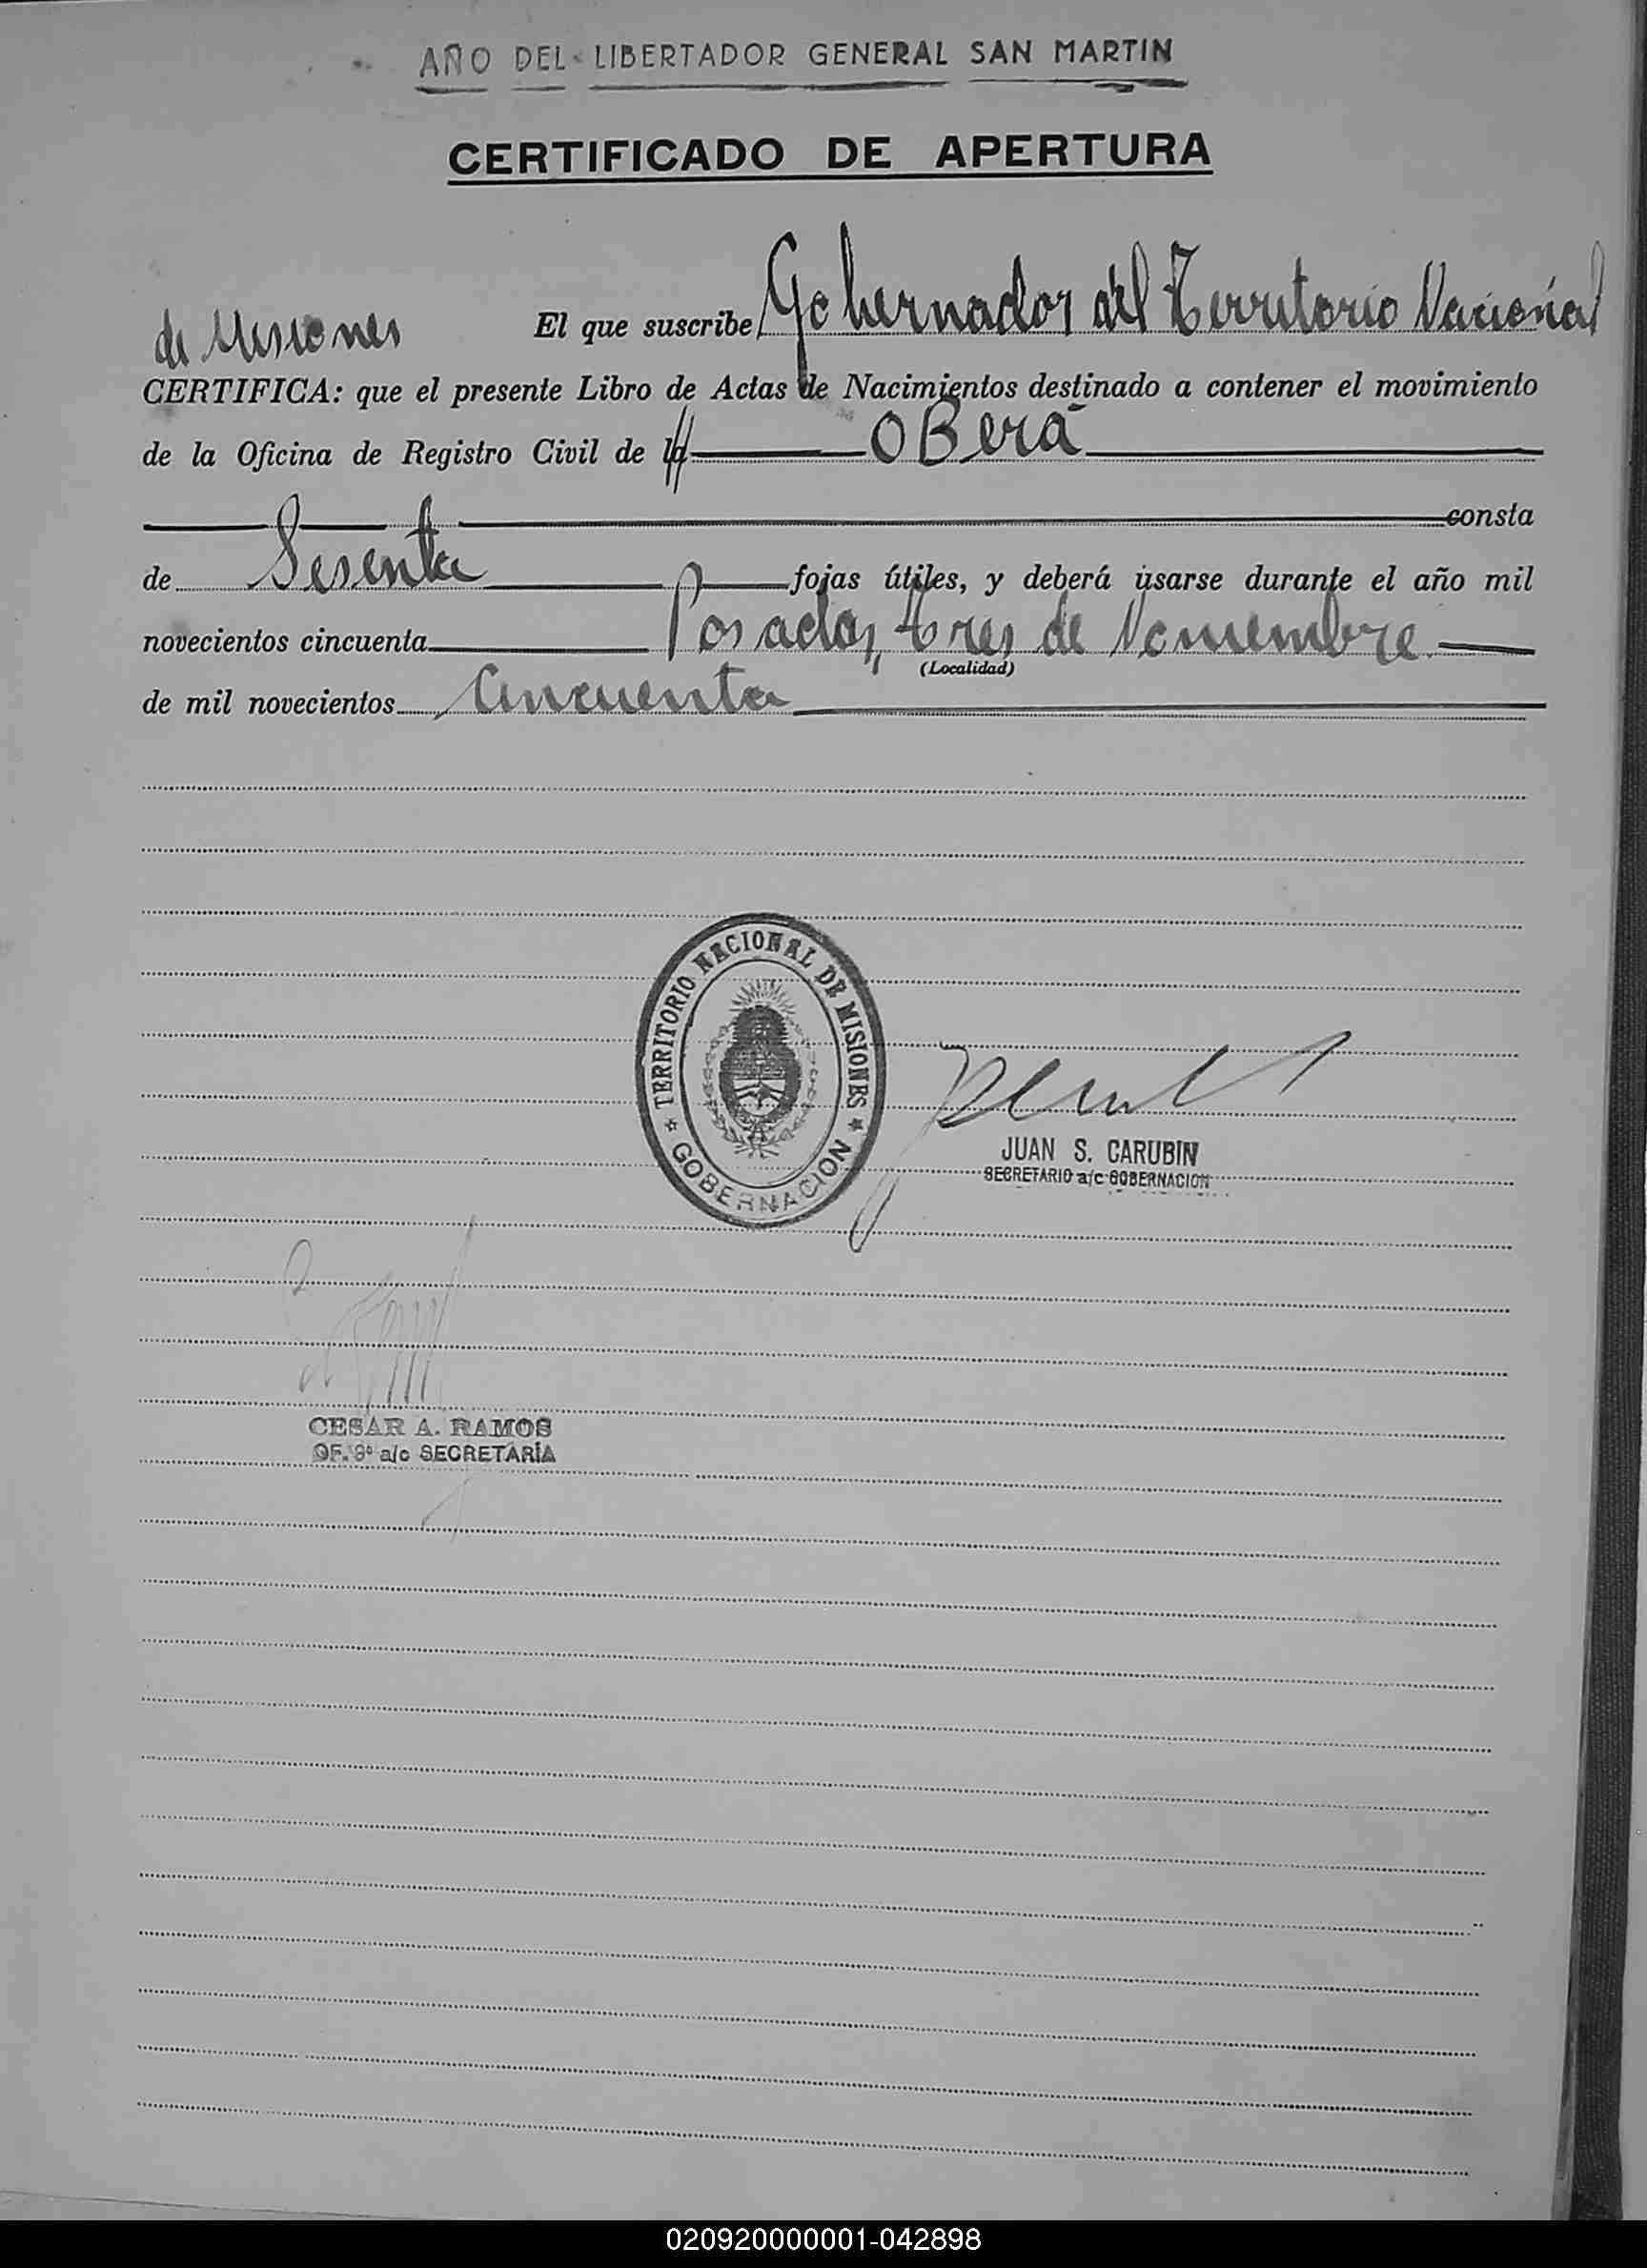 AÑO DEL LIBERTADOR GENERAL SAN MARTIN
CERTIFICADO DE APERTURA
El que suscribe Gobernador del Territorio Nacional
de Misiones
CERTIFICA: que el presente Libro de Actas de Nacimientos destinado a contener el movimiento
de la Oficina de Registro Civil de OBerá
consta
de Sesenta fojas útiles, y deberá usarse durante el año mil
novecientos cincuenta Posadas, tres de Noviembre
(Localidad)
de mil novecientos Cincuenta
TERRITORIO NACIONAL DE MISIONES
GOBERNACION
JUAN S. CARUBIN
SECRETARIO a/c GOBERNACION
CESAR A. RAMOS
OF. 9º a/c SECRETARÍA
020920000001-042898